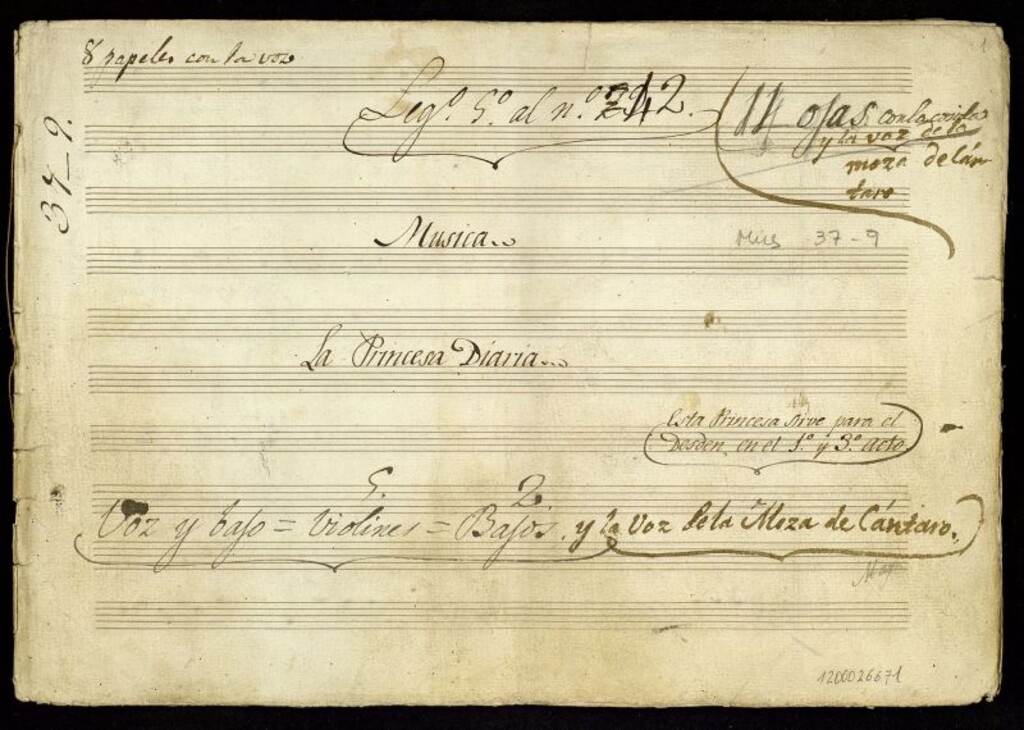 8 papeles con la voz
Leg.º 5.º al n.º 2
14 ojas con la cubierta
y la voz de la
moza de Cán-
taro
37-9.
Musica
Mus 37-9
La Princesa Diaria
Esta Princesa sirve para el
Desden, en el 1.º y 3.º acto.
5. 2
Voz y bajo = Violines = Bajos. y la Voz de la Moza de Cántaro.
1200026671
1